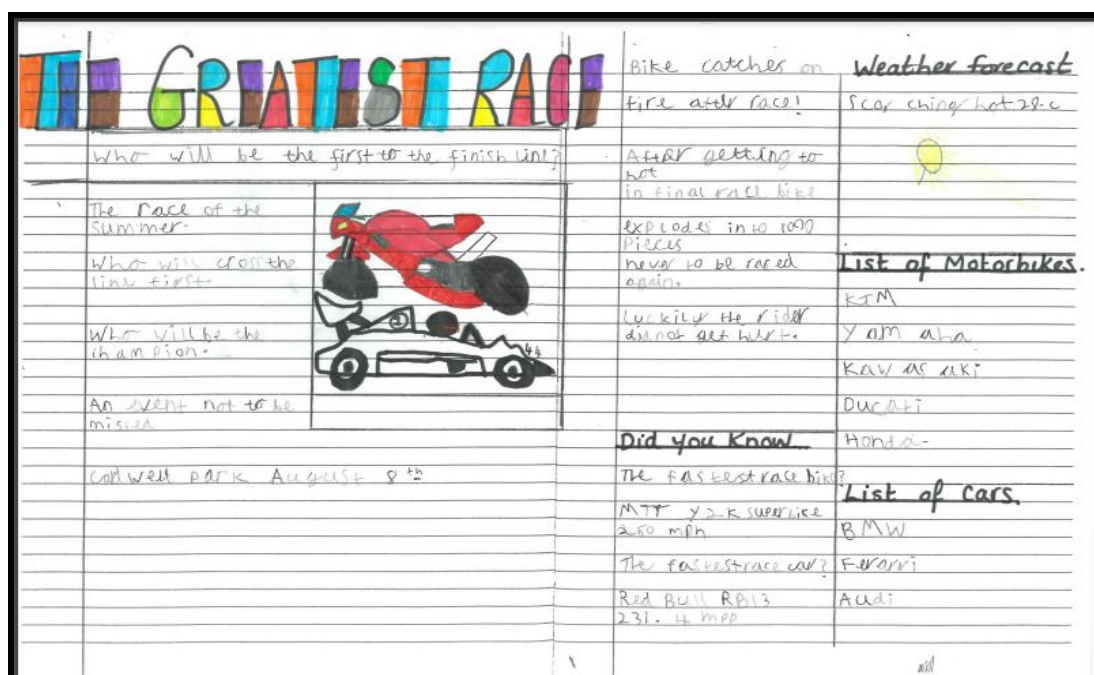 THE GREATEST RACE
Who will be the first to the finish line?
The race of the
summer.
Who will cross the
line first.
Who will be the
champion.
An event not to be
missed
Cadwell park August 8th
1
44
Bike catches on
fire after race!
After getting to
hot
in final race bike
explodes in to 1000
Pieces
never to be raced
again.
Luckily the rider
did not get hurt.
Did you know
The fastest race bike?
MTT Y2K superbike
250 mph
The fastest race car?
Red Bull RB13
231. 4 mpp
Weather forecast
Scorching hot 28.c
List of Motorbikes.
KTM
Yamaha
Kawasaki
Ducati
Honda.
List of cars.
BMW
Ferarri
Audi